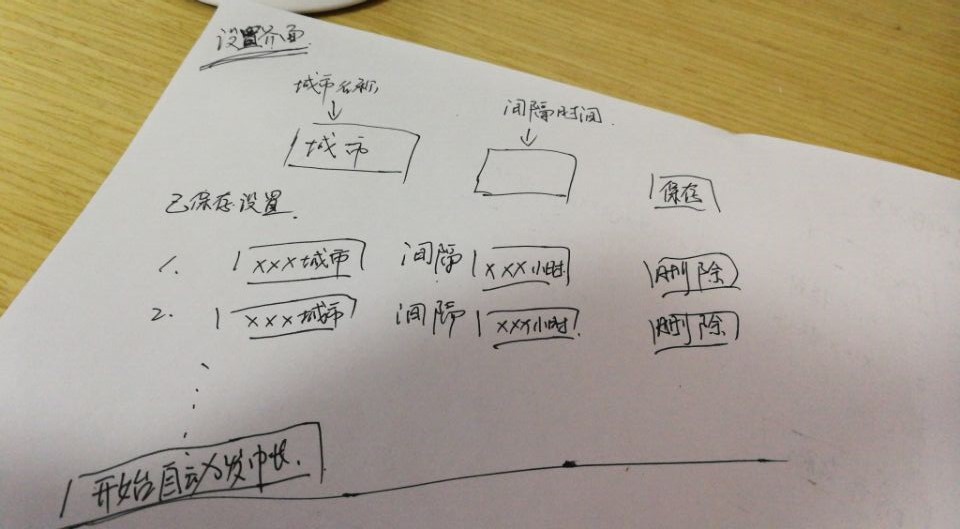 设置界面
城市名称
间隔时间
城市
保存
已保存设置
1. xxx城市 间隔 xxx小时 删除
2. xxx城市 间隔 xxx小时 删除
开始自动发